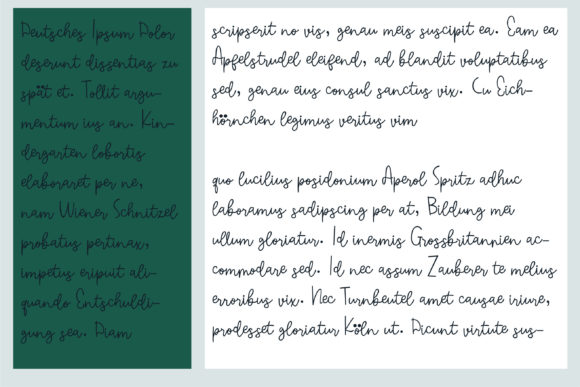 Deutsches Ipsum Dolor
deserunt dissentias zu
spät et. Tollit argu-
mentum ius an. Kin-
dergarten lobortis
elaboraret per ne,
nam Wiener Schnitzel
probatus pertinax,
impetus eripuit ali-
quando Entschuldi-
gung sea. Diam
scripserit no vis, genau meis suscipit ea. Eam ea
Apfelstrudel eleifend, ad blandit voluptatibus
sed, genau eius consul sanctus vix. Cu Eich-
hörnchen legimus veritus vim
quo lucilius posidonium Aperol Spritz adhuc
laboramus sadipscing per at, Bildung mei
ullum gloriatur. Id inermis Grossbritannien ac-
commodare sed. Id nec assum Zauberer te melius
erroribus vix. Nec Turnbeutel amet causae iriure,
prodesset gloriatur Köln ut. Dicunt virtute sus-